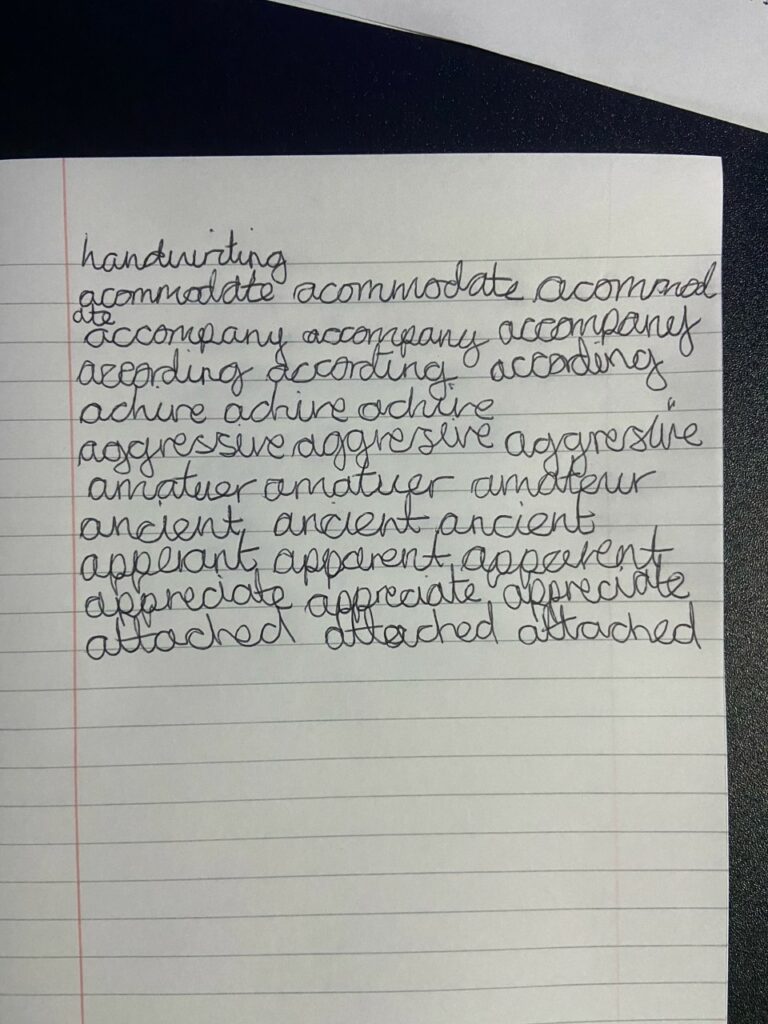 handwriting
acommodate acommodate acommod
ate
accompany accompany accompany
according according according
achire achire achire
aggressive aggresive aggresive
amatuer amatuer amateur
ancient, ancient, ancient
apperant, apparent, apparent
appreciate appreciate, appreciate
attached attached attached